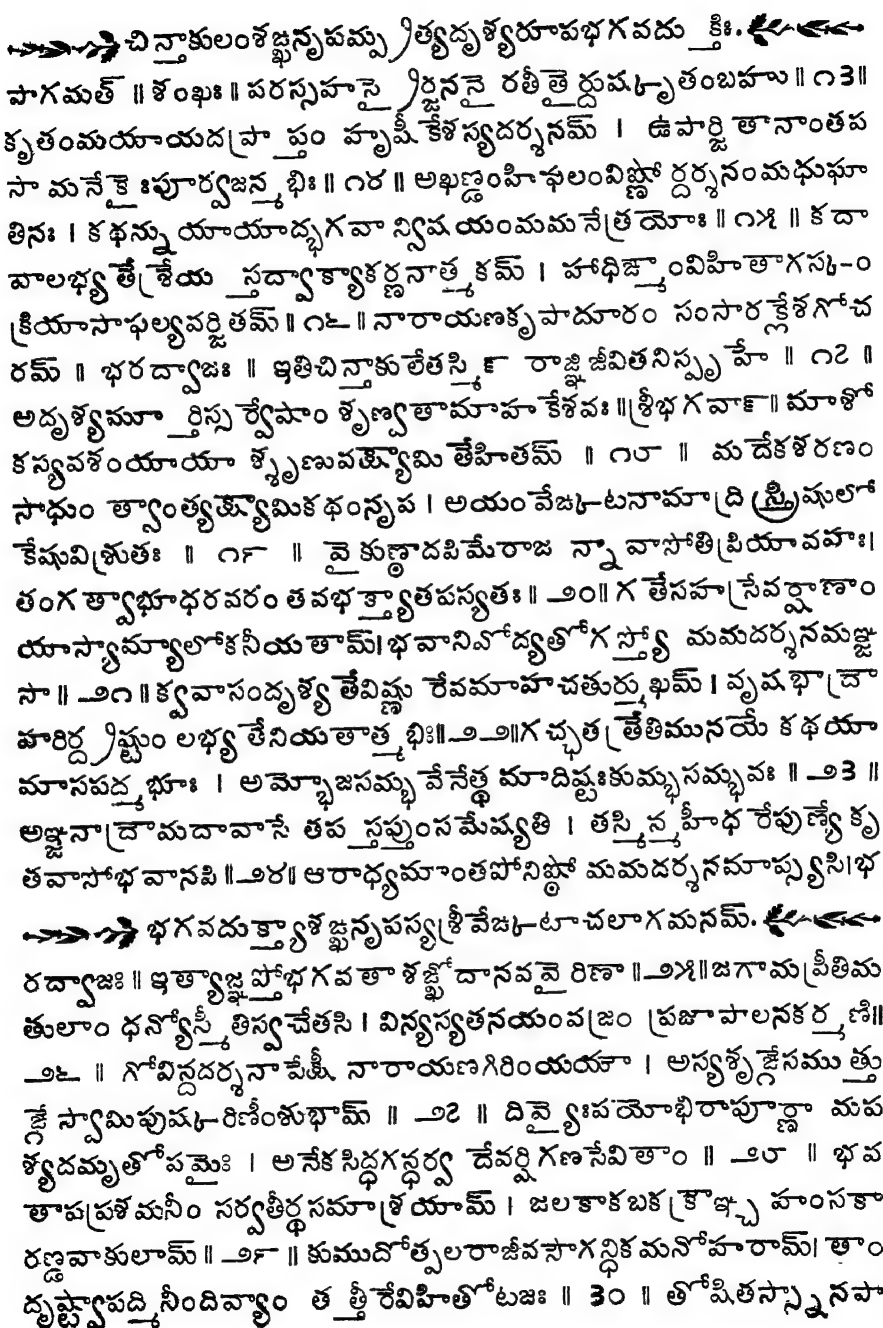 చిన్తాకులంశఙ్ఖనృపమ్ప్రత్యదృశ్యరూపభగవదుక్తిః.
పాగమత్ ॥ శంఖః ॥ పరస్సహస్రైర్జననై రతీతై ర్దుష్కృతంబహు ॥ ౧౩॥
కృతంమయాయదప్రాప్తం హృషీకేశస్యదర్శనమ్ । ఉపార్జితానాంతప
సా మనేకైః పూర్వజన్మభిః ॥ ౧౪ ॥ అఖణ్డంహిఫలంవిష్ణో ర్దర్శనంమధుఘా
తినః । కథన్ను యాయాద్భగవా న్విషయంమమనేత్రయోః ॥ ౧౫ ॥ కదా
వాలభ్యతే శ్రేయ స్తద్వాక్యాకర్ణనాత్మకమ్ । హాధిఙ్మాంవిహితాగస్కం
క్రియాసాఫల్యవర్జితమ్ ॥ ౧౬ ॥ నారాయణకృపాదూరం సంసారక్లేశగోచ
రమ్ ॥ భరద్వాజః ॥ ఇతిచిన్తాకులేతస్మిన్ రాజ్ఞిజీవితనిస్పృహే ॥ ౧౭ ॥
అదృశ్యమూర్తిస్సర్వేషాం శృణ్వతామాహకేశవః ॥శ్రీభగవాన్॥ మాశో
కస్యవశంయాయా శ్శృణువక్ష్యామి తేహితమ్ ॥ ౧౮ ॥ మదేకశరణం
సాధుం త్వాంత్యక్ష్యామికథంనృప । అయంవేఙ్కటనామాద్రి స్త్రిషులో
కేషువిశ్రుతః ॥ ౧౯ ॥ వైకుణ్ఠాదపిమేరాజ న్నావాసోతిప్రియావహః।
తంగత్వాభూధరవరం తవభక్త్యాతపస్యతః ॥ ౨౦॥ గతేసహస్రేవర్షాణాం
యాస్యామ్యాలోకనీయతామ్। భవానివోద్యతోగస్త్యో మమదర్శనమఞ్జ
సా ॥ ౨౧ ॥ క్వవాసందృశ్యతేవిష్ణు రేవమాహచతుర్ముఖమ్ । వృషభాద్రౌ
హరిర్ద్రష్టుం లభ్యతేనియతాత్మభిః॥౨౨॥గచ్ఛతత్రేతిమునయే కథయా
మాసపద్మభూః । అమ్భోజసమ్భవేనేత్థ మాదిష్టఃకుమ్భసమ్భవః ॥ ౨౩ ॥
అఞ్జనాద్రౌమదావాసే తపస్తప్తుంసమేష్యతి । తస్మిన్మహీధరేపుణ్యే కృ
తవాసోభవానపి ॥౨౪॥ ఆరాధ్యమాంతపోనిష్ఠో మమదర్శనమాప్స్యసి।భ
భగవదుక్త్యాశఙ్ఖనృపస్యశ్రీవేఙ్కటాచలాగమనమ్.
రద్వాజః ॥ ఇత్యాజ్ఞప్తోభగవతా శఙ్ఖోదానవవైరిణా ॥౨౫॥జగామప్రీతిమ
తులాం ధన్యోస్మీతిస్వచేతసి । విన్యస్యతనయంవజ్రం ప్రజాపాలనకర్మణి॥
౨౬ ॥ గోవిన్దదర్శనాపేక్షీ నారాయణగిరింయయౌ । అస్యశృఙ్గేసముత్తు
ఙ్గే స్వామిపుష్కరిణీంశుభామ్ ॥ ౨౭ ॥ దివ్యైఃపయోభిరాపూర్ణా మప
శ్యదమృతోపమైః । అనేకసిద్ధగన్ధర్వ దేవర్షిగణసేవితాం ॥ ౨౮ ॥ భవ
తాపప్రశమనీం సర్వతీర్థసమాశ్రయామ్ । జలకాకబకక్రౌఞ్చ హంసకా
రణ్డవాకులామ్ ॥ ౨౯ ॥ కుముదోత్పలరాజీవసౌగన్ధికమనోహరామ్। తాం
దృష్ట్వాపద్మినీందివ్యాం తత్తీరేవిహితోటజః ॥ ౩౦ ॥ తోషితస్స్నానపా